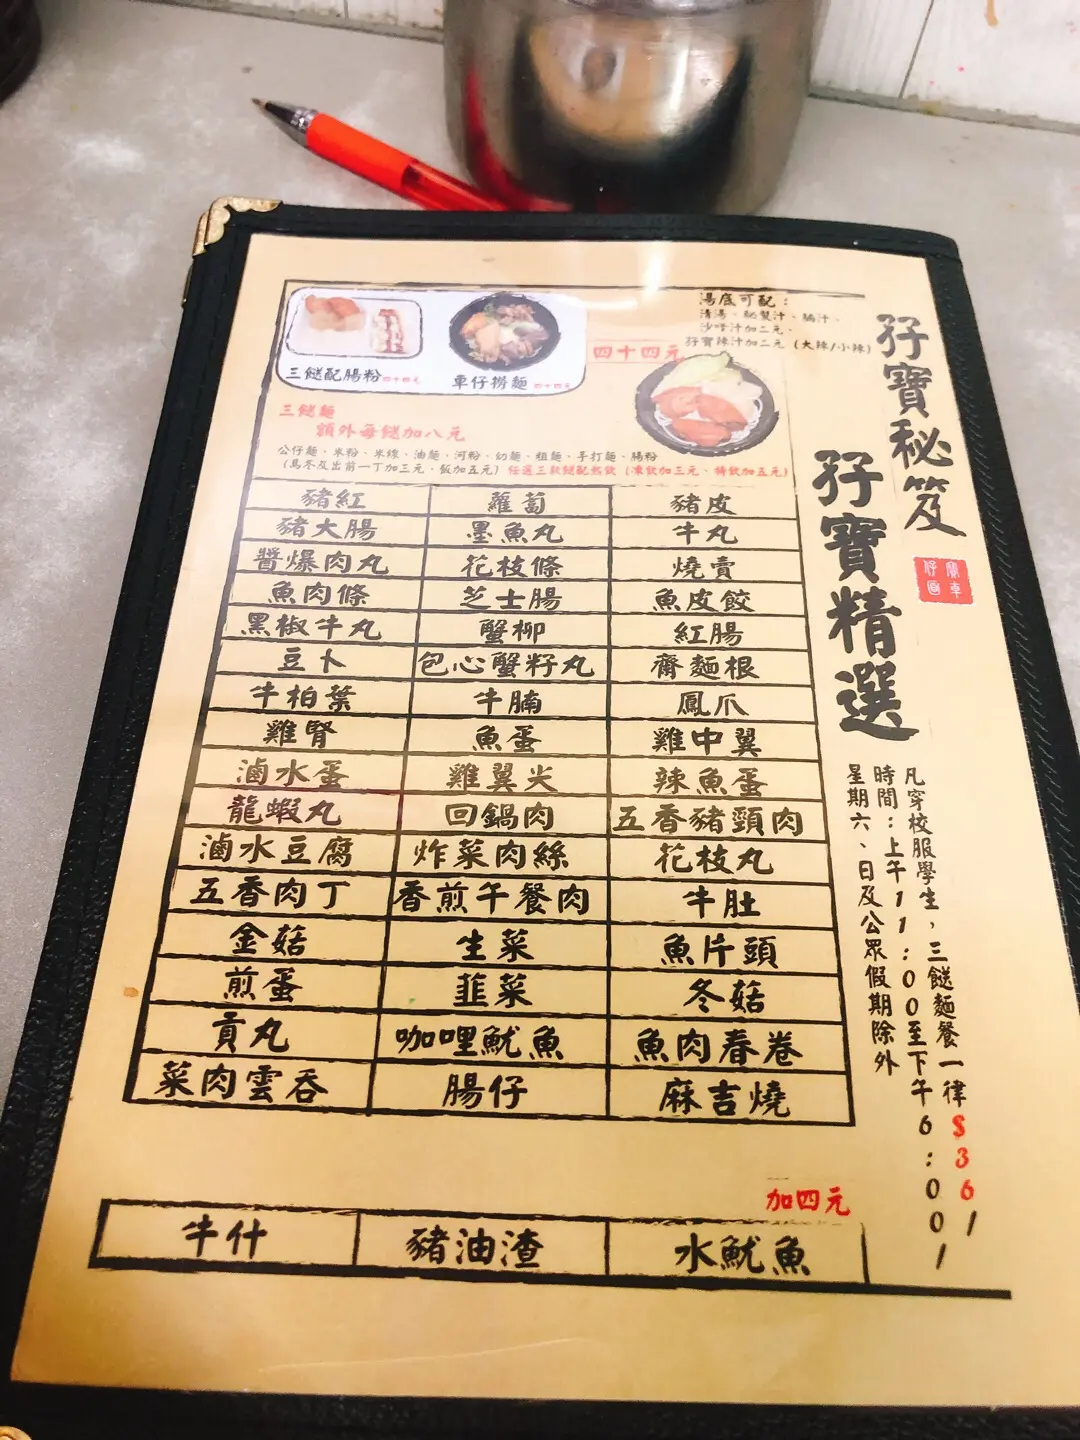 孖寶秘笈
孖寶精選
湯底可配：
清湯、秘製汁、腩汁、
沙嗲汁加二元、
孖寶辣汁加二元（大辣/小辣）
三餸配腸粉 四十四元
車仔撈麵 四十四元
四十四元
三餸麵
額外每餸加八元
公仔麵、米粉、米線、油麵、河粉、幼麵、粗麵、手打麵、腸粉
（烏冬及出前一丁加三元、飯加五元）任選三款餸配熱飲（凍飲加三元、特飲加五元）
豬紅 蘿蔔 豬皮
豬大腸 墨魚丸 牛丸
醬爆肉丸 花枝條 燒賣
魚肉條 芝士腸 魚皮餃
黑椒牛丸 蟹柳 紅腸
豆卜 包心蟹籽丸 齋麵根
牛柏葉 牛腩 鳳爪
雞腎 魚蛋 雞中翼
滷水蛋 雞翼尖 辣魚蛋
龍蝦丸 回鍋肉 五香豬頸肉
滷水豆腐 炸菜肉絲 花枝丸
五香肉丁 香煎午餐肉 牛肚
金菇 生菜 魚片頭
煎蛋 韮菜 冬菇
貢丸 咖哩魷魚 魚肉春卷
菜肉雲吞 腸仔 麻吉燒
加四元
牛什 豬油渣 水魷魚
凡穿校服學生，三餸麵餐一律$36/
時間：上午11:00至下午6:00/
星期六、日及公眾假期除外